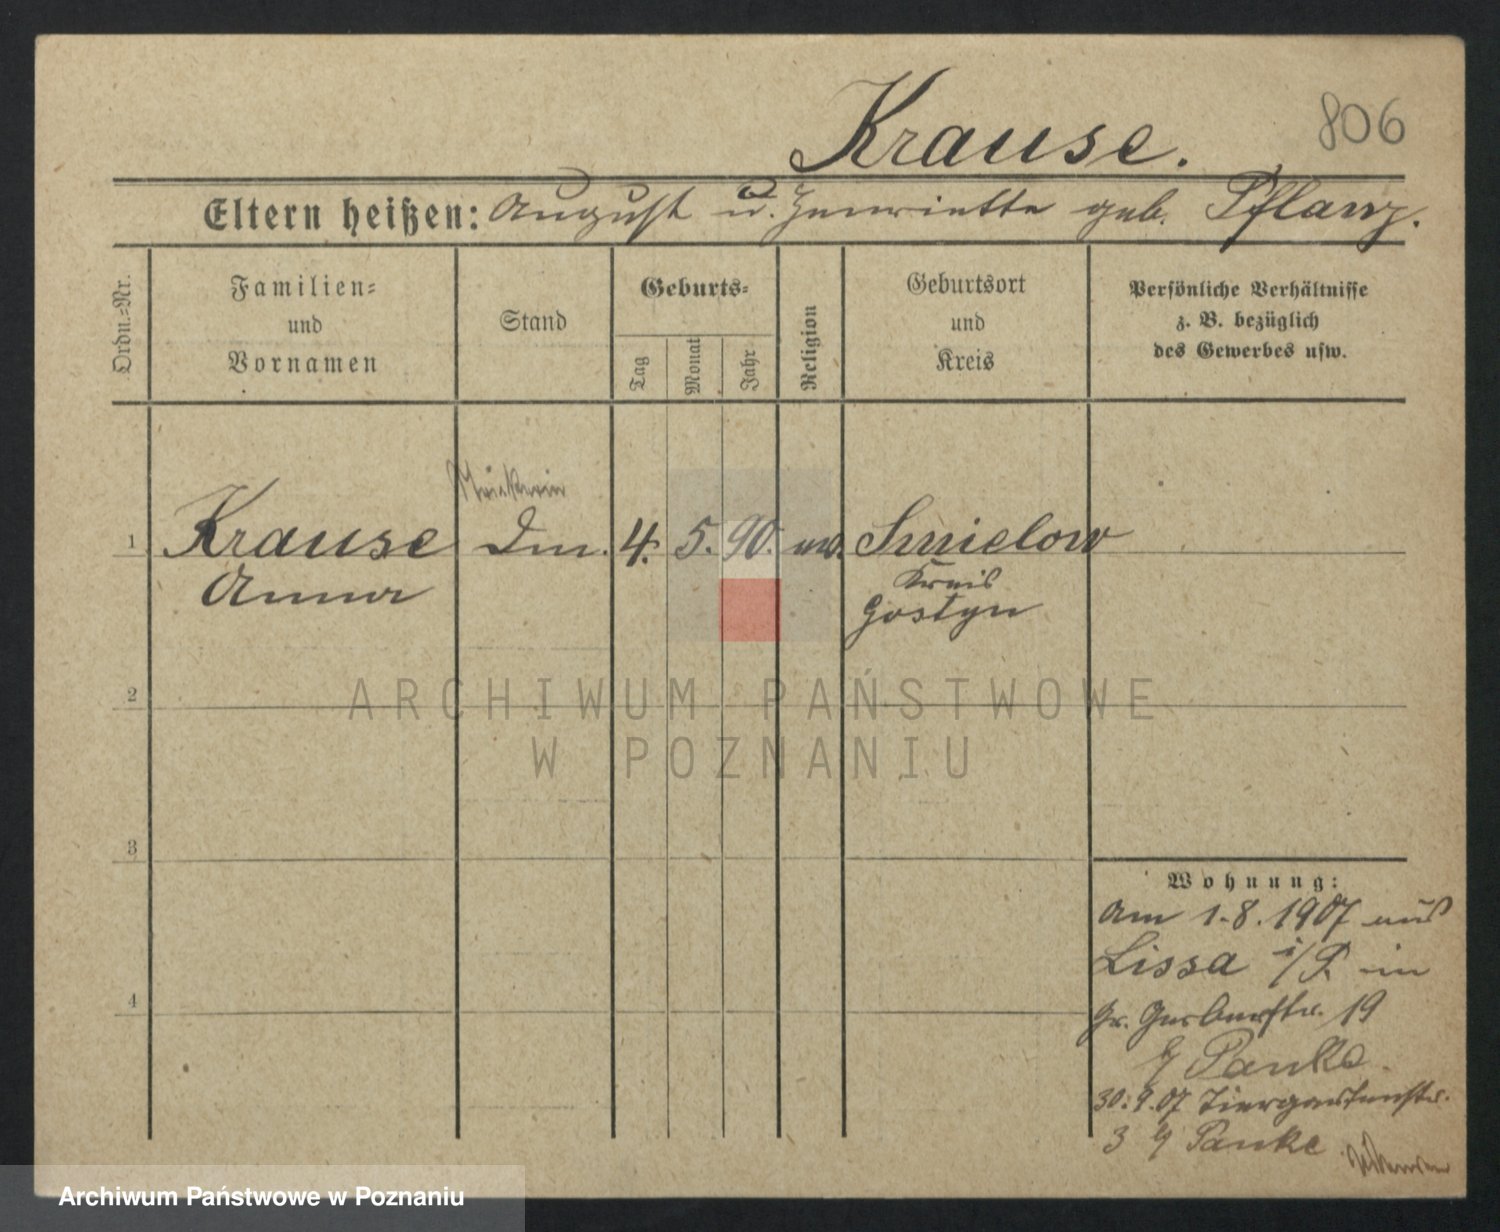 Krause.
806
Eltern heißen: August u. Henriette geb. Pflanz.
Ordn.-Nr.
Familien-
und
Vornamen
Stand
Geburts-
Tag
Monat
Jahr
Religion
Geburtsort
und
Kreis
Persönliche Verhältnisse
z. B. bezüglich
des Gewerbes usw.
1
Krause
Anna
4. 5. 90.
Smielow
Kreis
Gostyn
ARCHIWUM PAŃSTWOWE
W POZNANIU
2
3
4
Wohnung:
Am 1.8.1907 aus
Lissa i/P. in
Gr. Gerberstr. 19
b/ Panke
30.9.07 Tiergartenstr.
3 b/ Panke
Archiwum Państwowe w Poznaniu